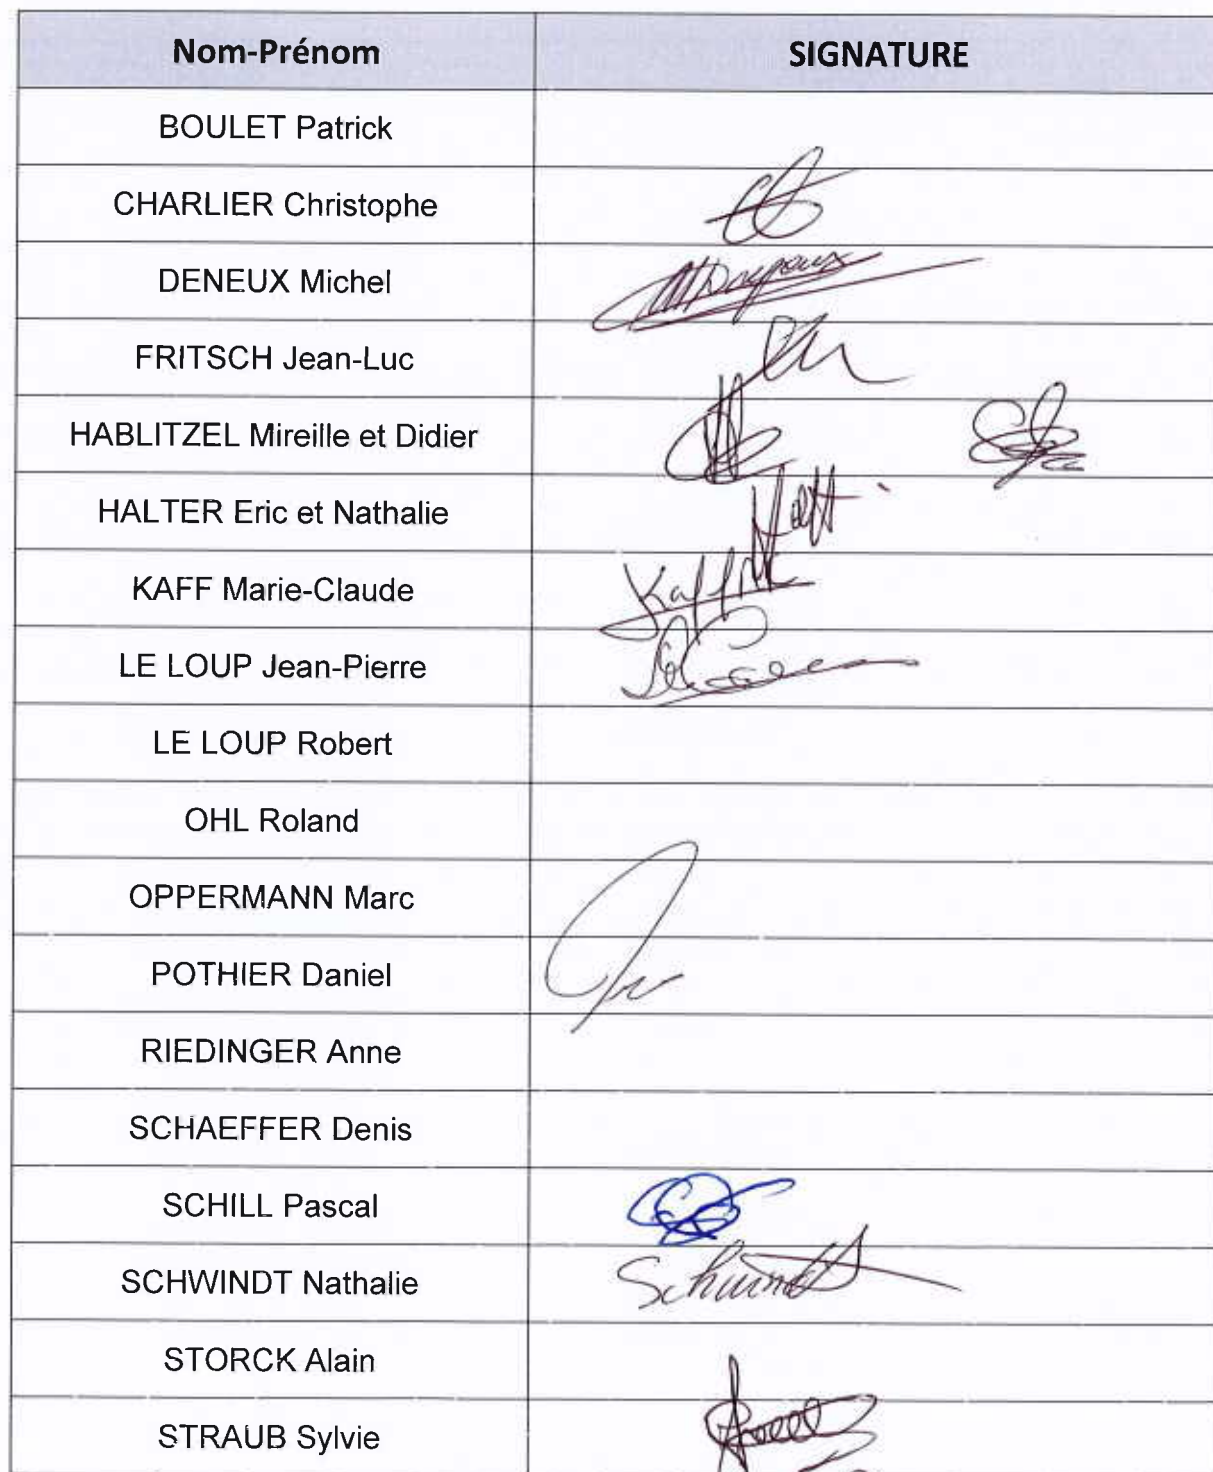 Nom-Prénom SIGNATURE
BOULET Patrick
CHARLIER Christophe
DENEUX Michel
FRITSCH Jean-Luc
HABLITZEL Mireille et Didier
HALTER Eric et Nathalie
KAFF Marie-Claude Kaff
LE LOUP Jean-Pierre
LE LOUP Robert
OHL Roland
OPPERMANN Marc
POTHIER Daniel
RIEDINGER Anne
SCHAEFFER Denis
SCHILL Pascal
SCHWINDT Nathalie Schwindt
STORCK Alain
STRAUB Sylvie